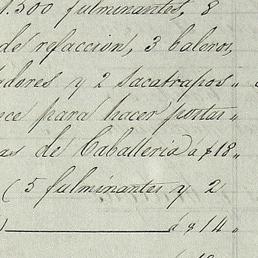 1.500 fulminantes, 8
de refaccion, 3 baleros,
dores y 2 sacatrapos "
ce para hacer portas
as de Caballeria a $18 "
( 5 fulminantes y 2
) á $14 "
á $